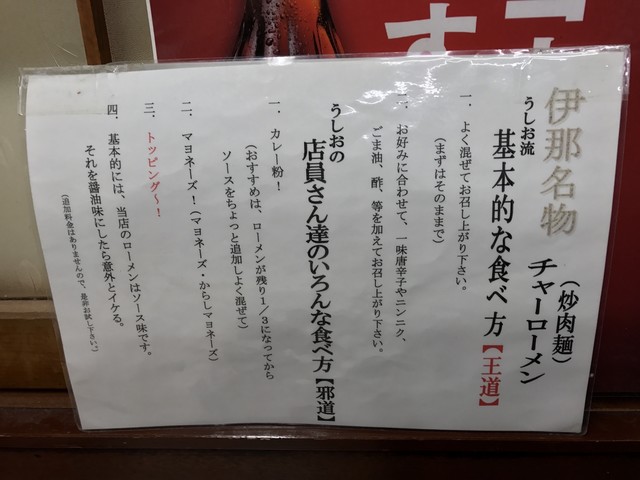 こ
す
伊那名物
(炒肉麺)
チャーローメン
うしお流
基本的な食べ方【王道】
一、よく混ぜてお召し上がり下さい。
(まずはそのままで)
二、お好みに合わせて、一味唐辛子やニンニク、
ごま油、酢、等を加えてお召し上がり下さい。
うしおの
店員さん達のいろんな食べ方【邪道】
一、カレー粉!
(おすすめは、ローメンが残り1/3になってから
ソースをちょっと追加しよく混ぜて)
二、マヨネーズ!(マヨネーズ・からしマヨネーズ)
三、トッピング〜!
四、基本的には、当店のローメンはソース味です。
それを醤油味にしたら意外とイケる。
(追加料金はありませんので、是非お試し下さい。)